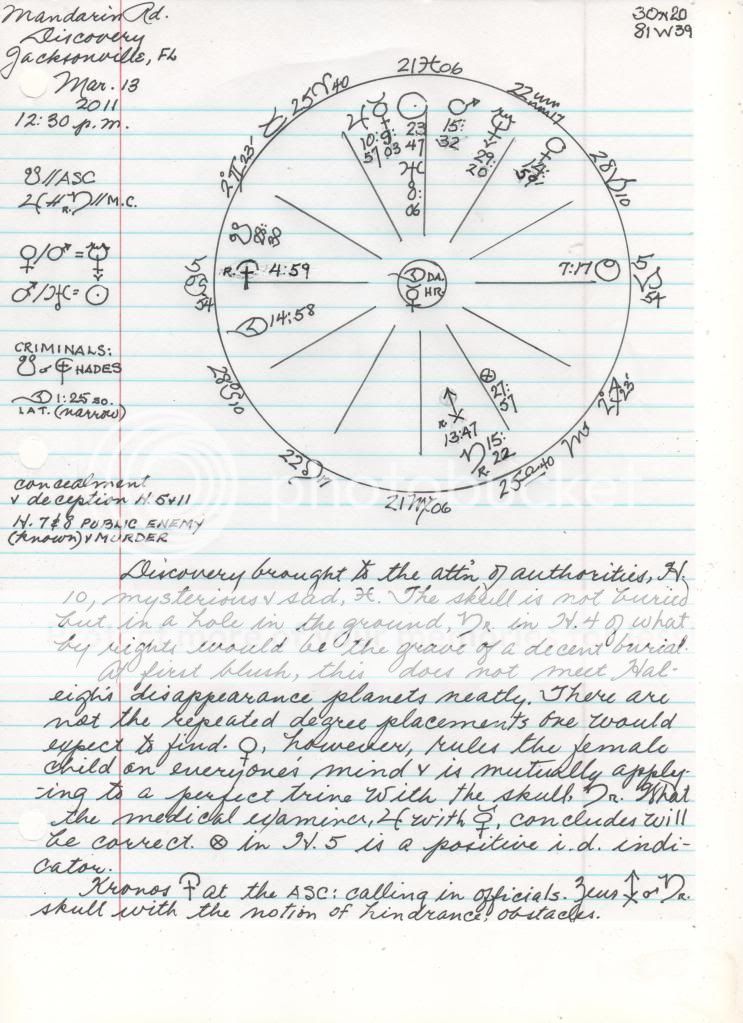 Mandarin Rd.
Discovery
Jacksonville, FL
Mar. 13
2011
12:30 p.m.
30N20
81W39
☋//ASC
♃ ♅ ♄R.//M.C.
♀/♂=
♂/♃=☉
CRIMINALS:
☋ or HADES
☽ 1:25 SO.
LAT. (narrow)
concealment
& deception H.5&11
H. 7&8 PUBLIC ENEMY
(known) & MURDER
21♓06
25♈40
22♒17
♉
28♑10
2♊23
5♋54
5♑54
28♋10
2♐23
♏
22♌17
25♎40
21♍06
♃ 10:57
☿ 9:03
☉ 23 ♓ 47
8:06
♂ 15:32
29:20
♀ 14:59
R. 4:59
7:17
☽ 14:58
☽ DA.
☿ HR.
⊗ 27:57
R. 13:47
♄ 15:22 R.
Discovery brought to the att'n of authorities, H.
10, mysterious & sad, ♓. The skull is not buried
but in a hole in the ground, ♄R in H.4 of what
by rights would be the grave of a decent burial.
At first blush, this does not meet Hal-
eigh's disappearance planets neatly. There are
not the repeated degree placements one would
expect to find. ♀, however, rules the female
child on everyone's mind & is mutually apply-
ing to a perfect trine with the skull, ♄R. What
the medical examiner, ♃ with ☿, concludes will
be correct. ⊗ in H.5 is a positive i.d. indi-
cator.
Kronos at the ASC: calling in officials. Zeus ☌ ♄R.
skull with the notion of hindrance, obstacles.
photobucket